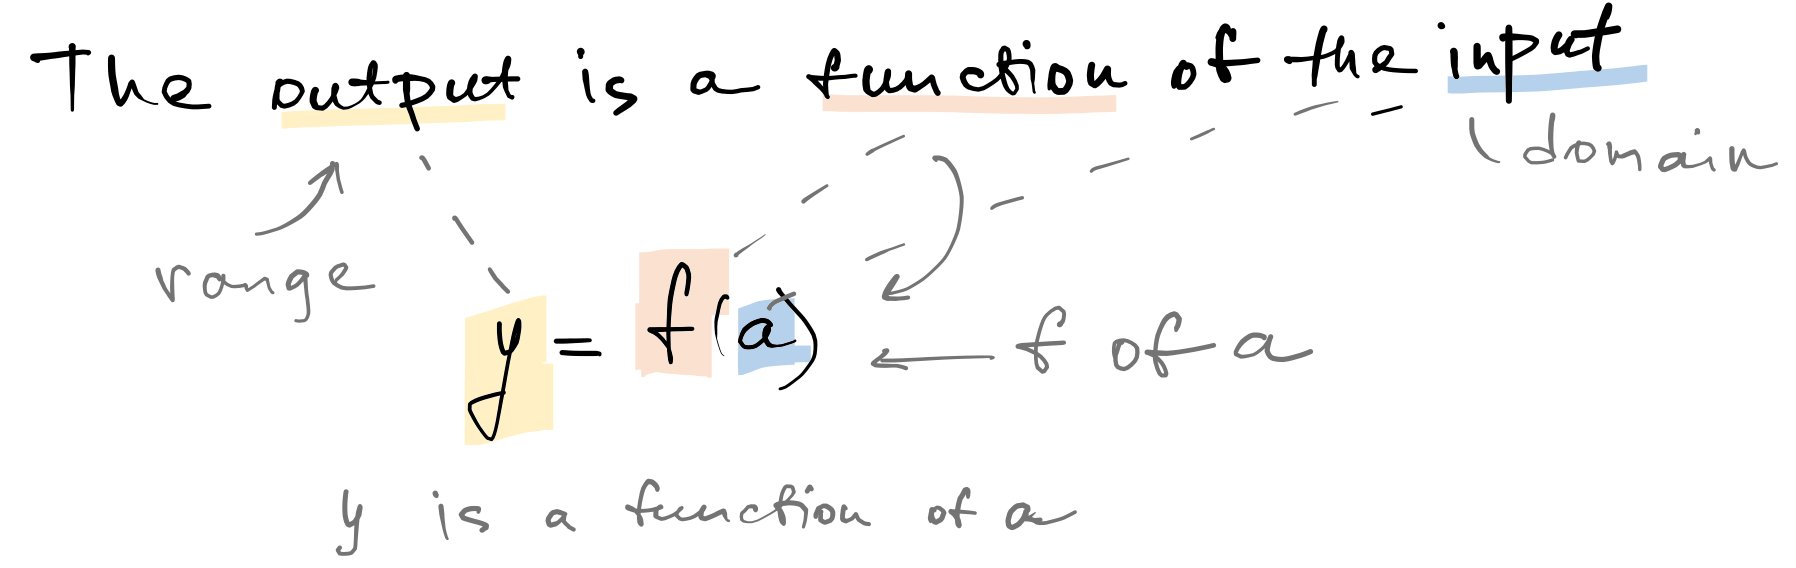 The output is a function of the input
domain
range
y = f(a) f of a
y is a function of a